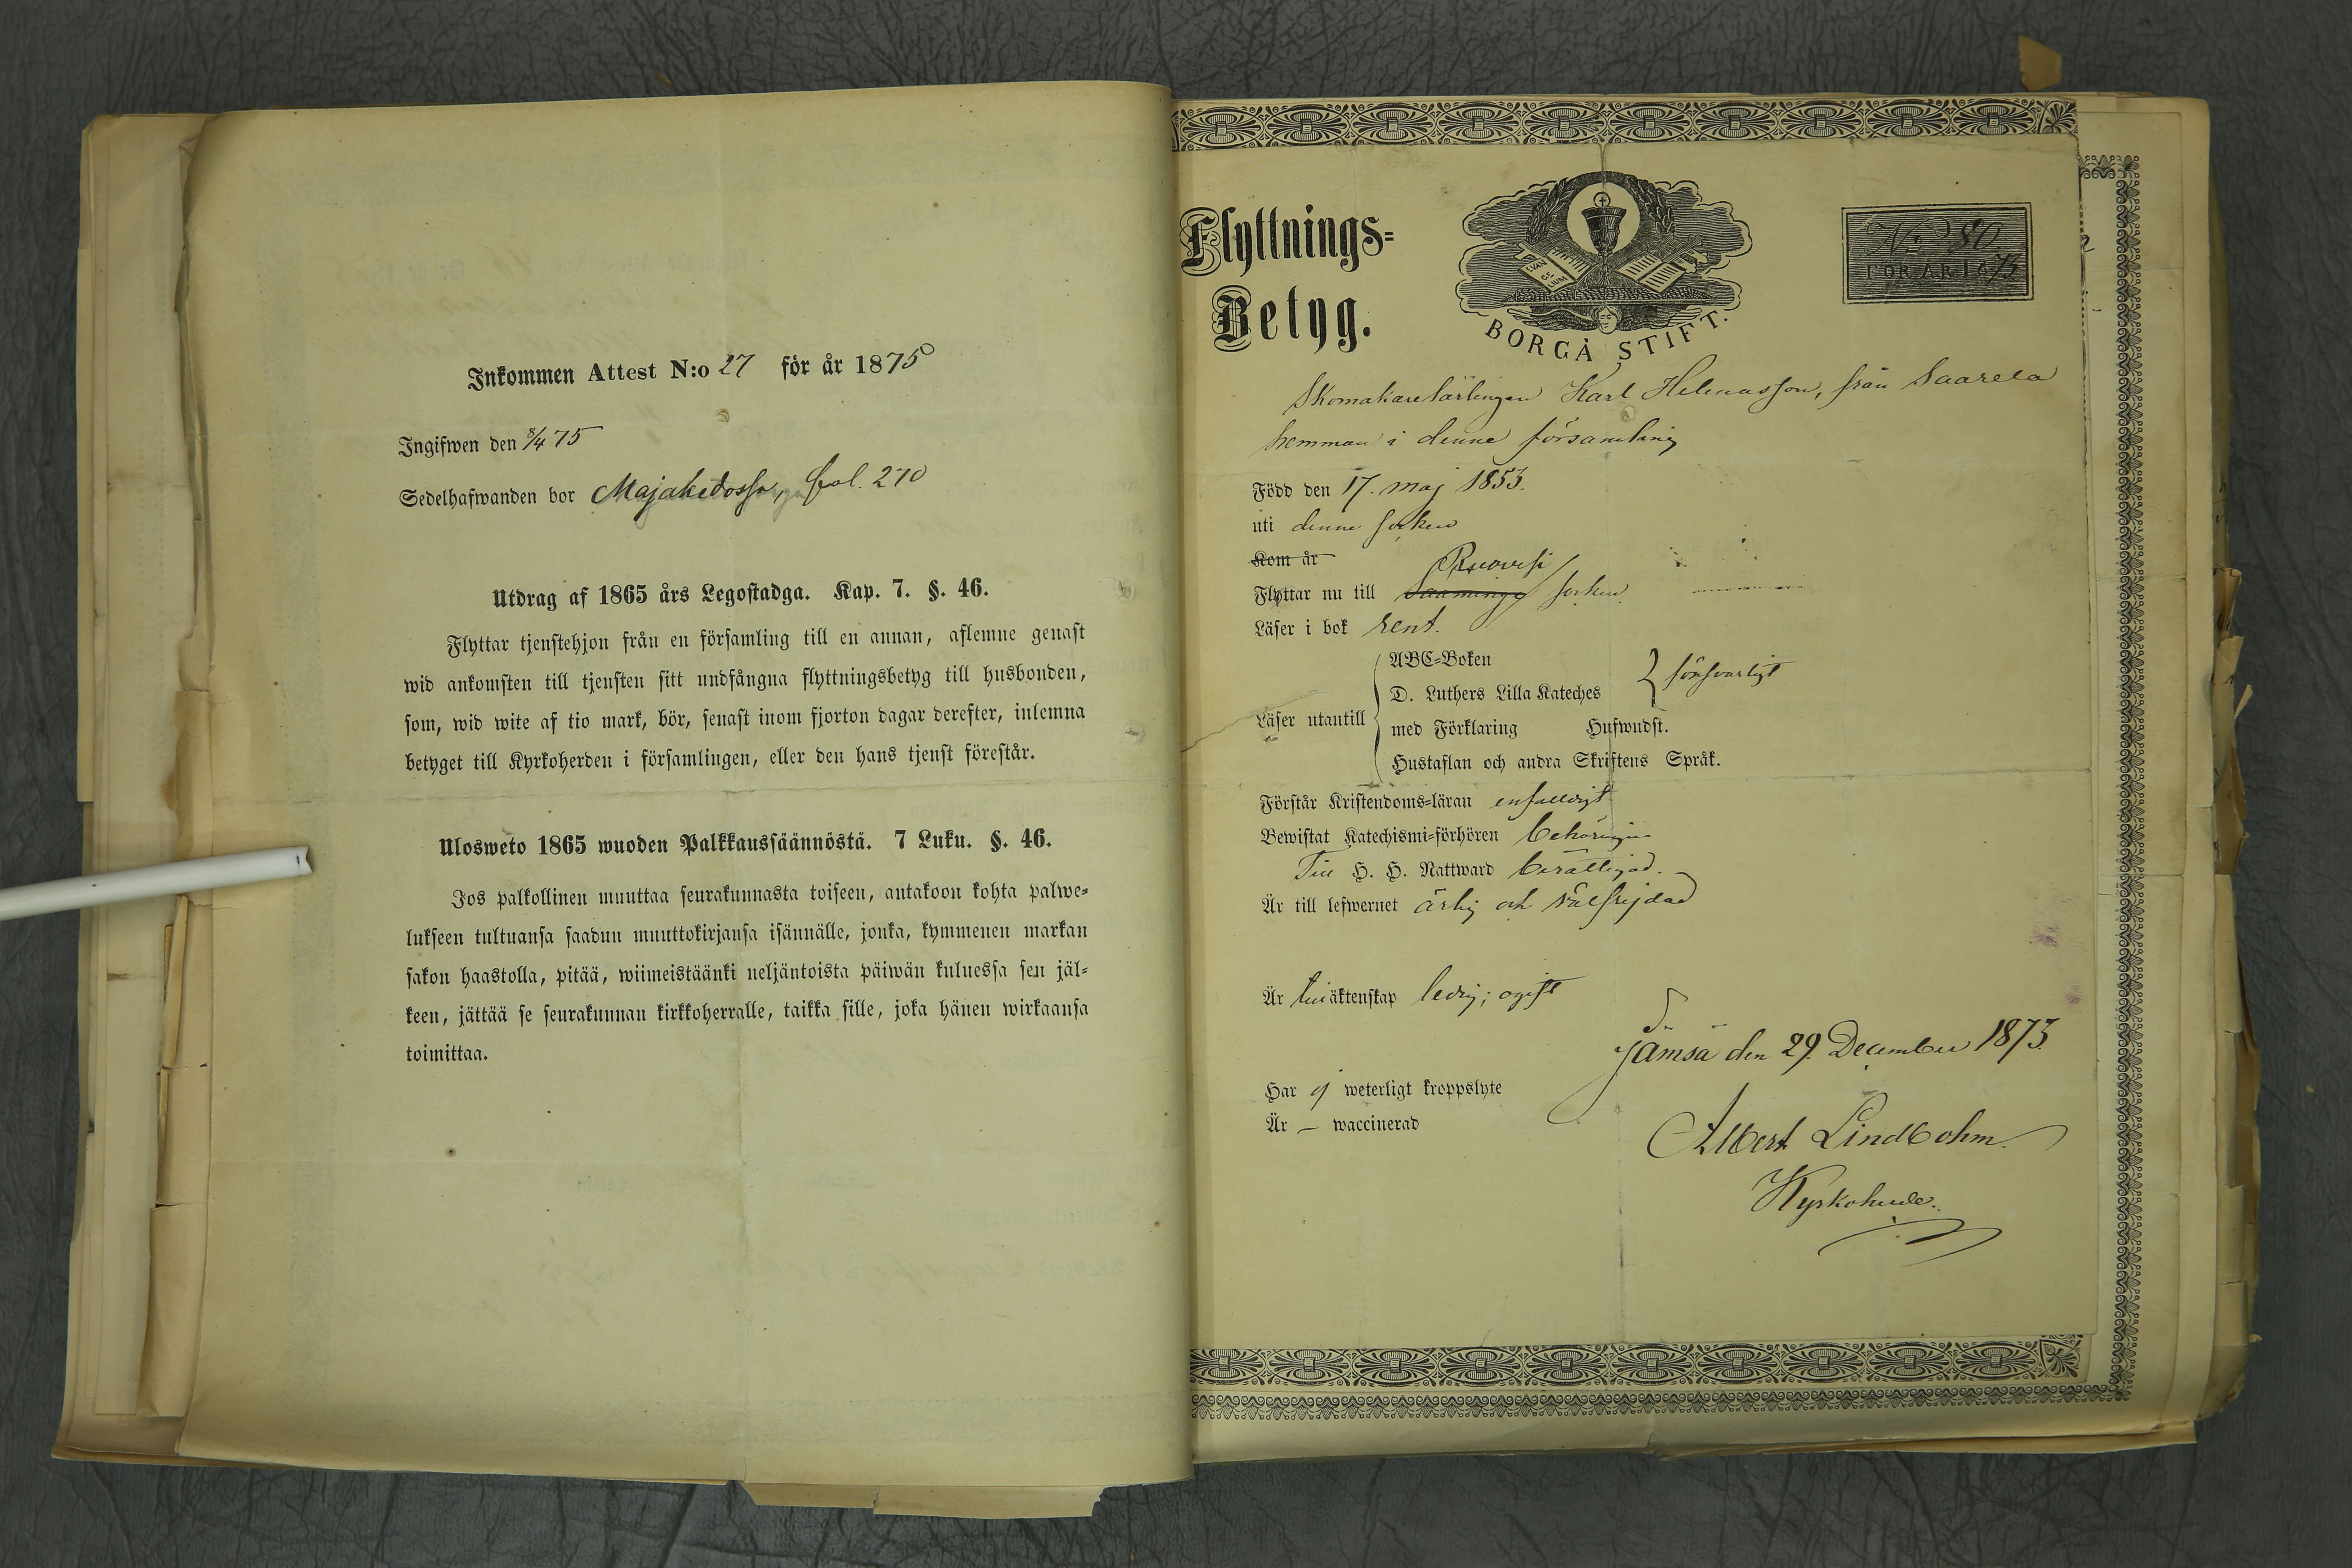 Inkommen Attest N:o 27 för år 1875
Ingifwen den 8/4 75
Sedelhafwanden bor Majakedossa, fol. 270
Utdrag af 1865 års Legostadga. Kap. 7. §. 46.
Flyttar tjenstehjon från en församling till en annan, aflemne genast
wid ankomsten till tjensten sitt undfångna flyttningsbetyg till husbonden,
som, wid wite af tio mark, bör, senast inom fjorton dagar derefter, inlemna
betyget till Kyrkoherden i församlingen, eller den hans tjenst förestår.
Ulosweto 1865 wuoden Palkkaussäännöstä. 7 Luku. §. 46.
Jos palkollinen muuttaa seurakunnasta toiseen, antakoon kohta palwe-
lukseen tultuansa saadun muuttokirjansa isännälle, jonka, kymmenen markan
sakon haastolla, pitää, wiimeistäänki neljäntoista päiwän kuluessa sen jäl-
keen, jättää se seurakunnan kirkkoherralle, taikka sille, joka hänen wirkaansa
toimittaa.
Flyttnings-
Betyg.
EVAN
GE
LIUM
BORGÅ STIFT.
No 80
FÖR ÅR 1873
Skomakarelärlingen Karl Helenasson, från Saarela
hemman i denne församling
Född den 17. maj 1853.
uti denne socken
Kom år
Ruovesi
Flyttar nu till Saaminge socken
Läser i bok rent.
Läser utantill
ABC-Boken
D. Luthers Lilla Kateches
försvarligt
med Förklaring Hufwudst.
Hustaflan och andra Skriftens Språk.
Förstår Kristendoms-läran enfaldigt
Bewistat Katechismi-förhören behörigen
Till H. H. Nattward berättigad.
Är till lefwernet ärlig och välfrejdad
Är till äktenskap ledig; ogift
Jämsä den 29. December 1873.
Har ej weterligt kroppslyte
Är — waccinerad
Albert Lindbohm.
Kyrkoherde.